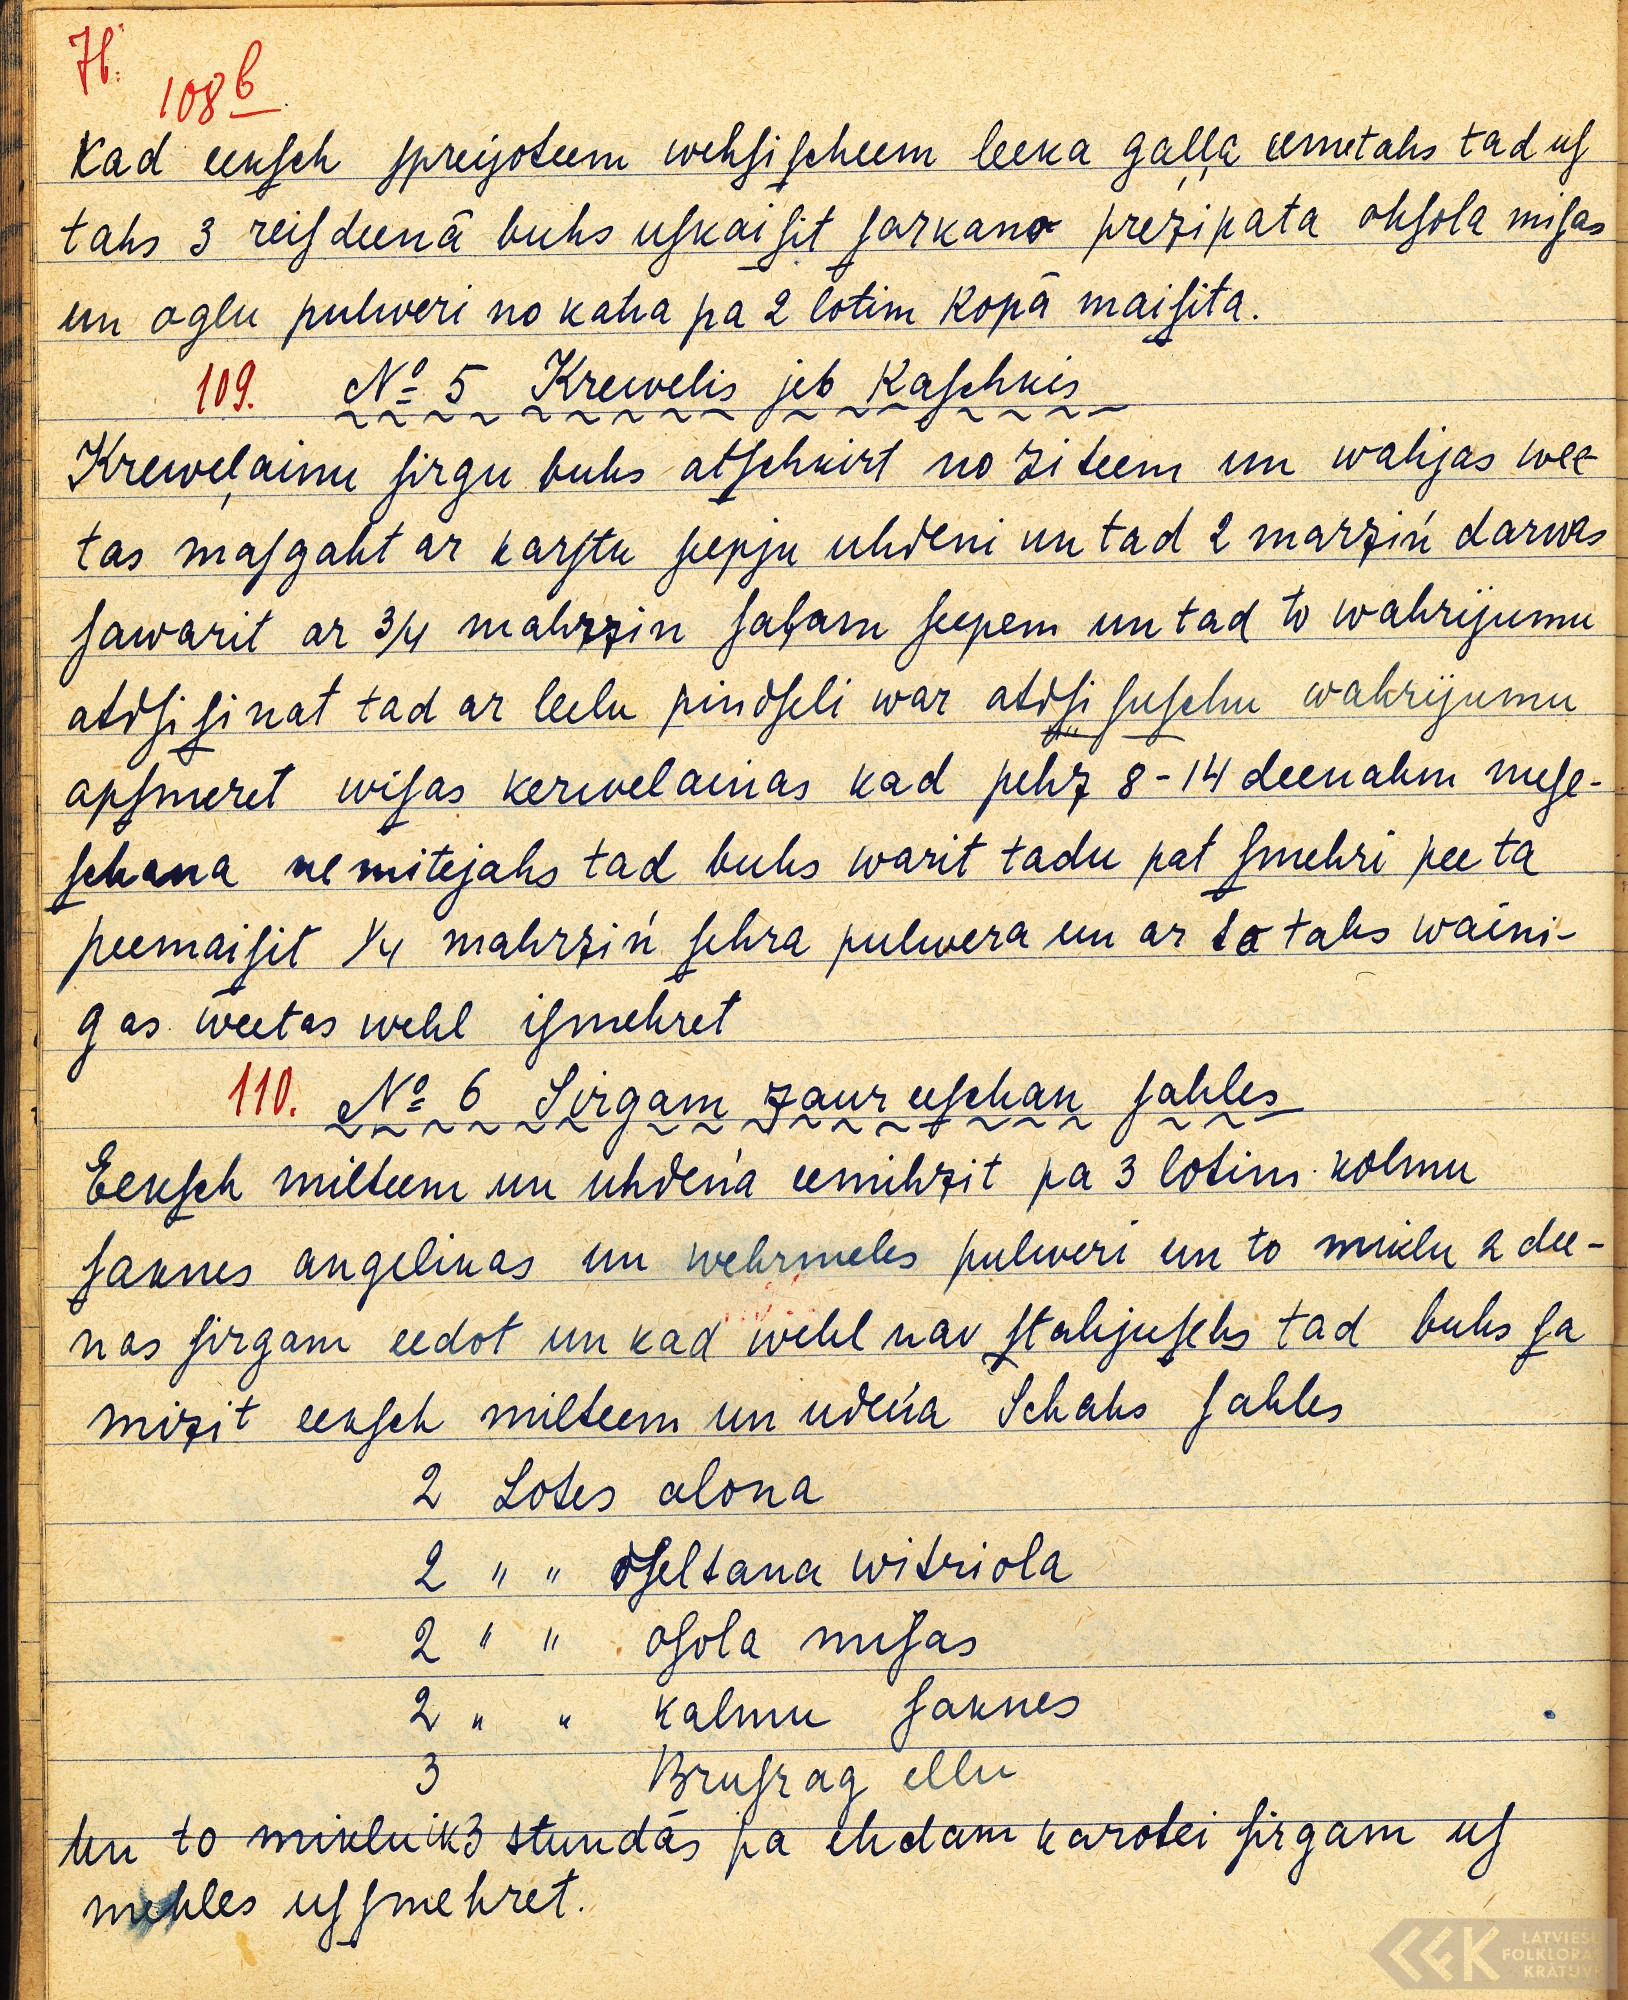 76.
108 b
Kad eeksch spreijoteem wehsischeem leeka gaļļa eemetahs tad us
tahs 3 reis deenā buhs uskaisit sarkano prezipata ohsola misas
un oglu pulweri no katra pa 2 lotim kopā maisita.
109. № 5 Krewelis jeb Kaschkis
Kreweļainu sirgu buhs atschkirt no ziteem un wahjas wee-
tas masgaht ar karstu seepju uhdeni un tad 2 marziń darwas
sawarit ar 3/4 mahrzin saļam seepem un tad to wahrijumu
atdsisinat tad ar leelu pindseli war atdsisuschu wahrijumu
apsmeret wisas kerwelainas kad pehz 8-14 deenahm niese-
schana nemitejahs tad buhs warit tadu pat smehri pee ta
peemaisit 1/4 mahrziń sehra pulwera un ar to tahs waini-
gas weetas wehl ismehret
110. № 6 Sirgam zaureeschan sahles
Eeksch milteem un uhdeńa eemihzit pa 3 lotim kolmu
saknes angelikas un wehrmeles pulweri un to miklu 2 dee-
nas sirgam eedot un kad wehl nav stahjusehs tad buhs sa
mizit eeksch milteem un udeńa Schahs sahles
2 Lotes alona
2 " " dseltana witriola
2 " " osola misas
2 " " kalmu saknes
3 Brusrag ellu
Un to miklu ik 3 stundās pa ehdam karotei sirgam us
mehles ussmehret.
LATVIEŠU
FOLKLORAS
KRĀTUVE